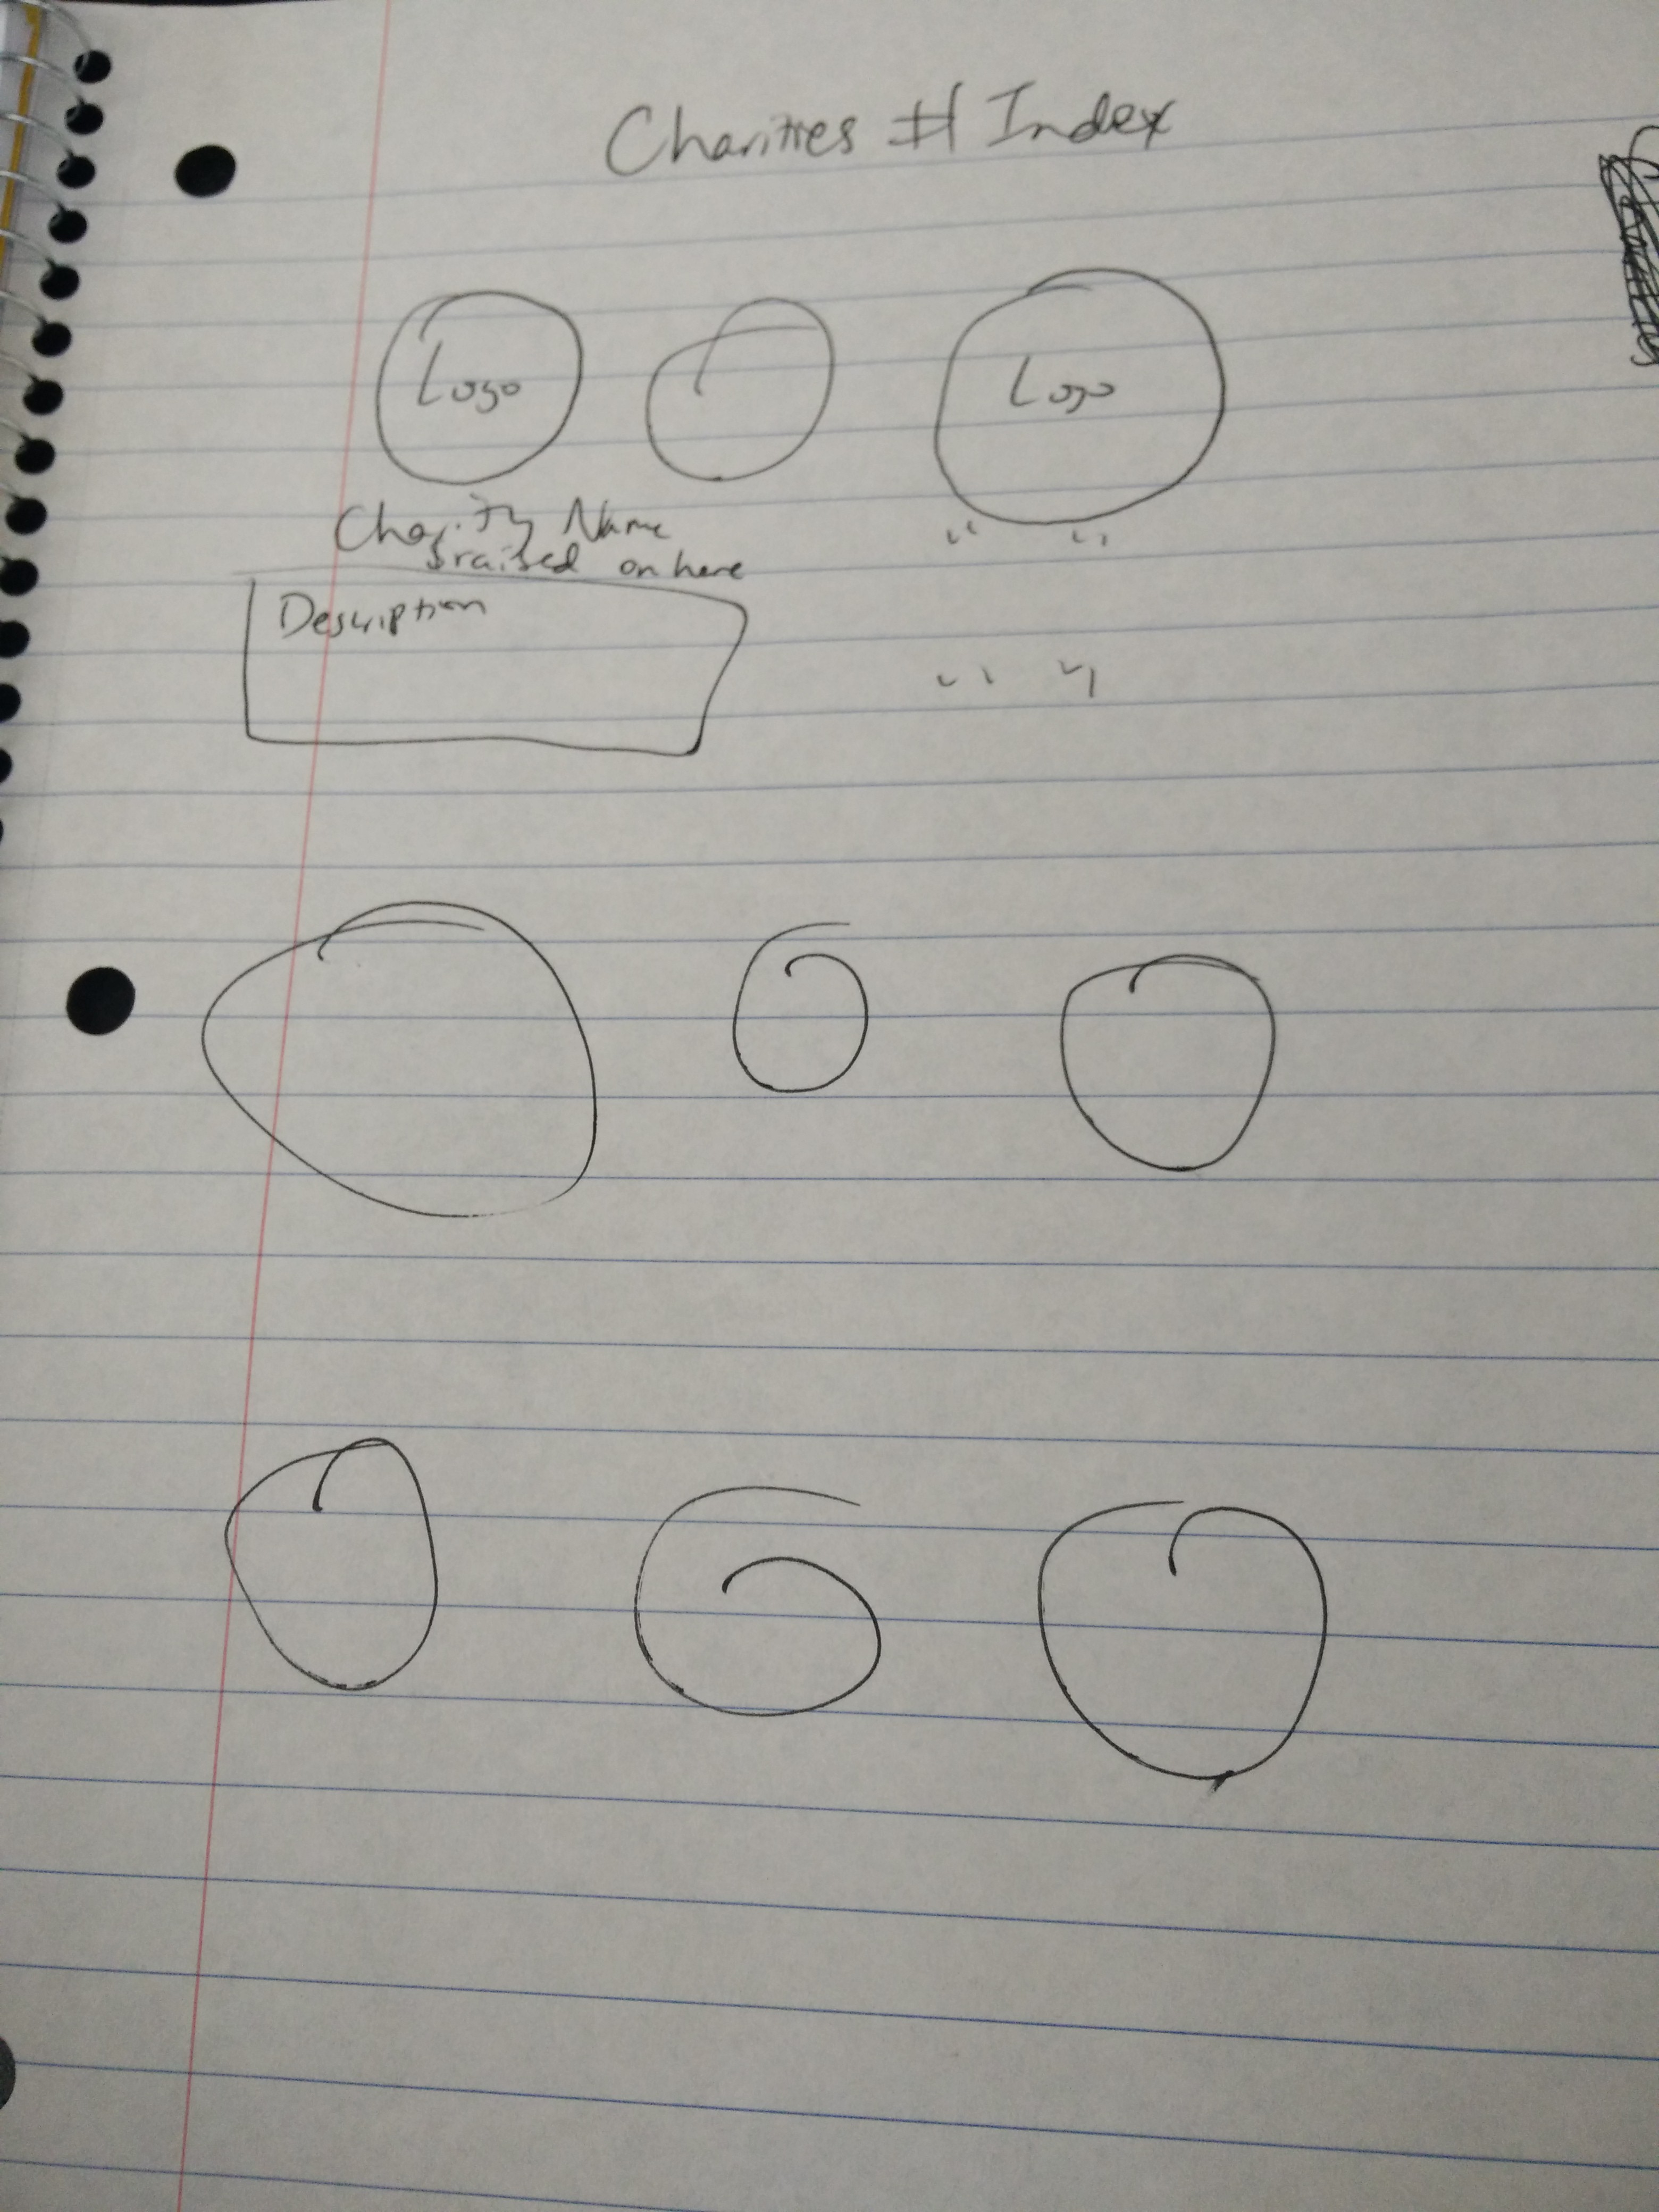 Charities # Index
Logo
Logo
Charity Name
$ raised on here
" "
Description
" "